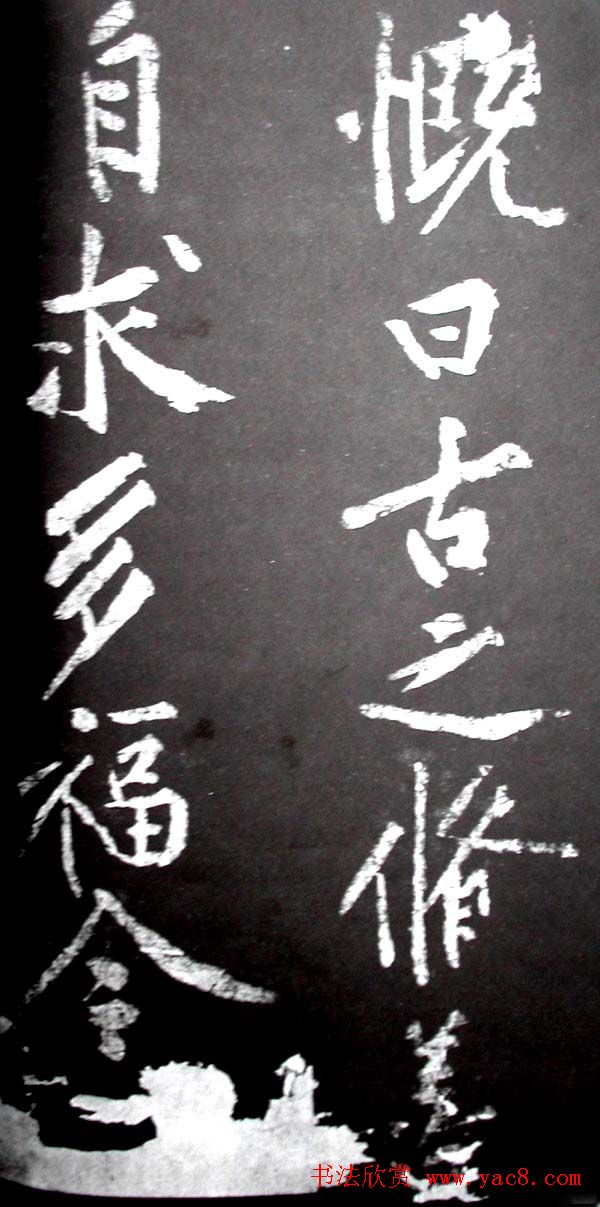 慨曰古之修
自求多福
书法欣赏 www.yac8.com